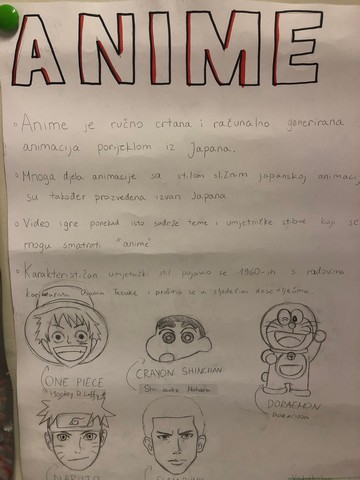 ANIME
Anime je ručno crtana i računalno generirana
animacija porijeklom iz Japana.
Mnoga djela animacije sa stilom sličnim japanskoj animaci
su također prozvedena izvan Japana
Video igre ponekad isto sadrže teme i umjetničke stilove koji se
mogu smatrati "anime"
Karakterističan umjetnički stil pojavio se 1960-ih s radovima
Osamu Tezuke i proširio se u sljedećim desetljećima.
ONE PIECE
Monkey D. Luffy
CRAYON SHINCHAN
Shin
Nohara
DORAEMON
Doraemon
NARUTO